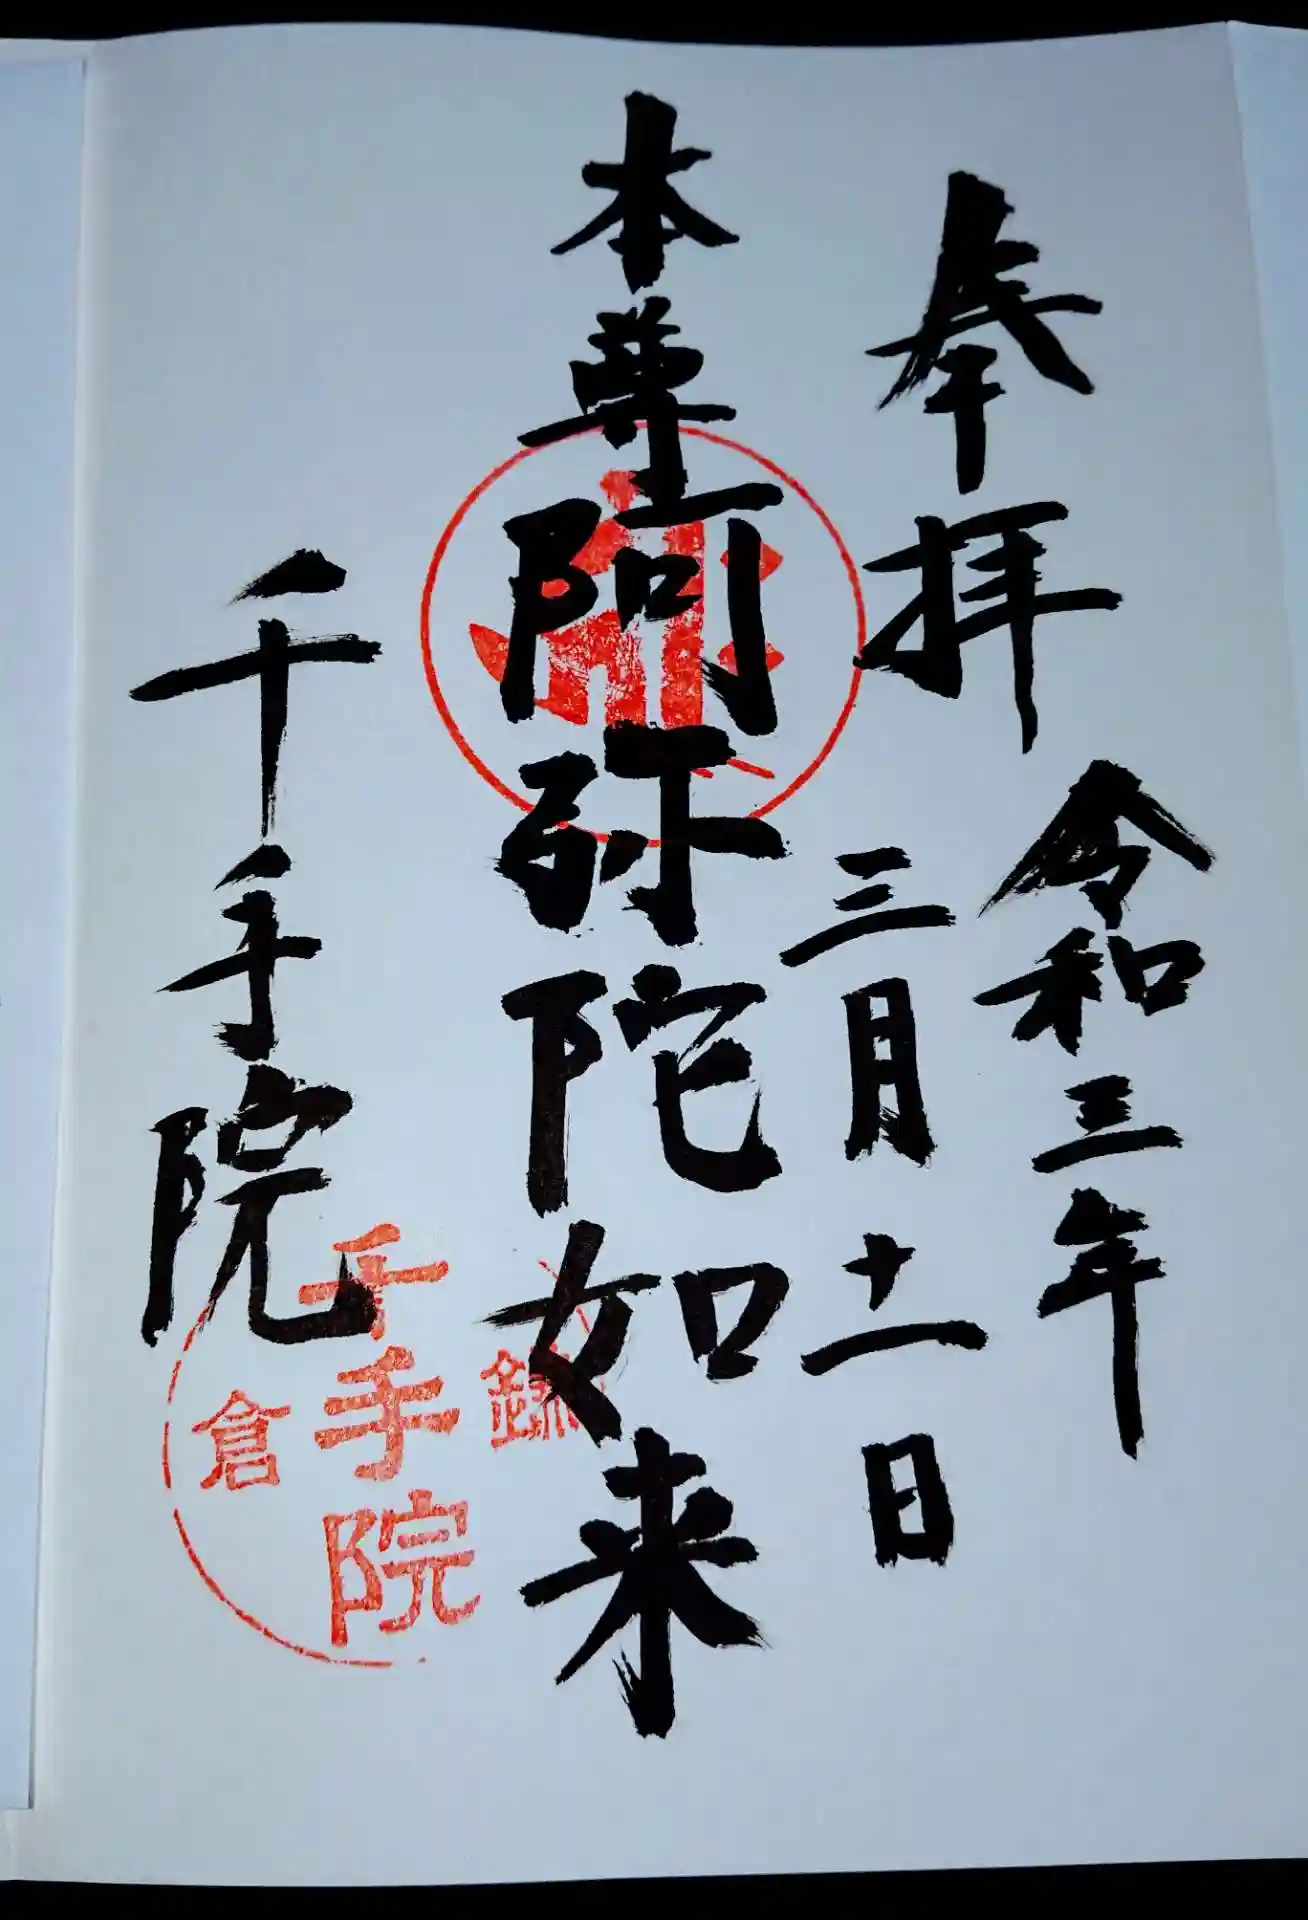 奉拝
令和三年
三月十一日
本尊阿弥陀如来
千手院
鎌
千手院
倉